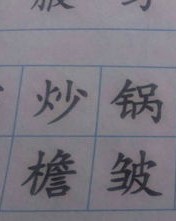 炒锅
檐皱